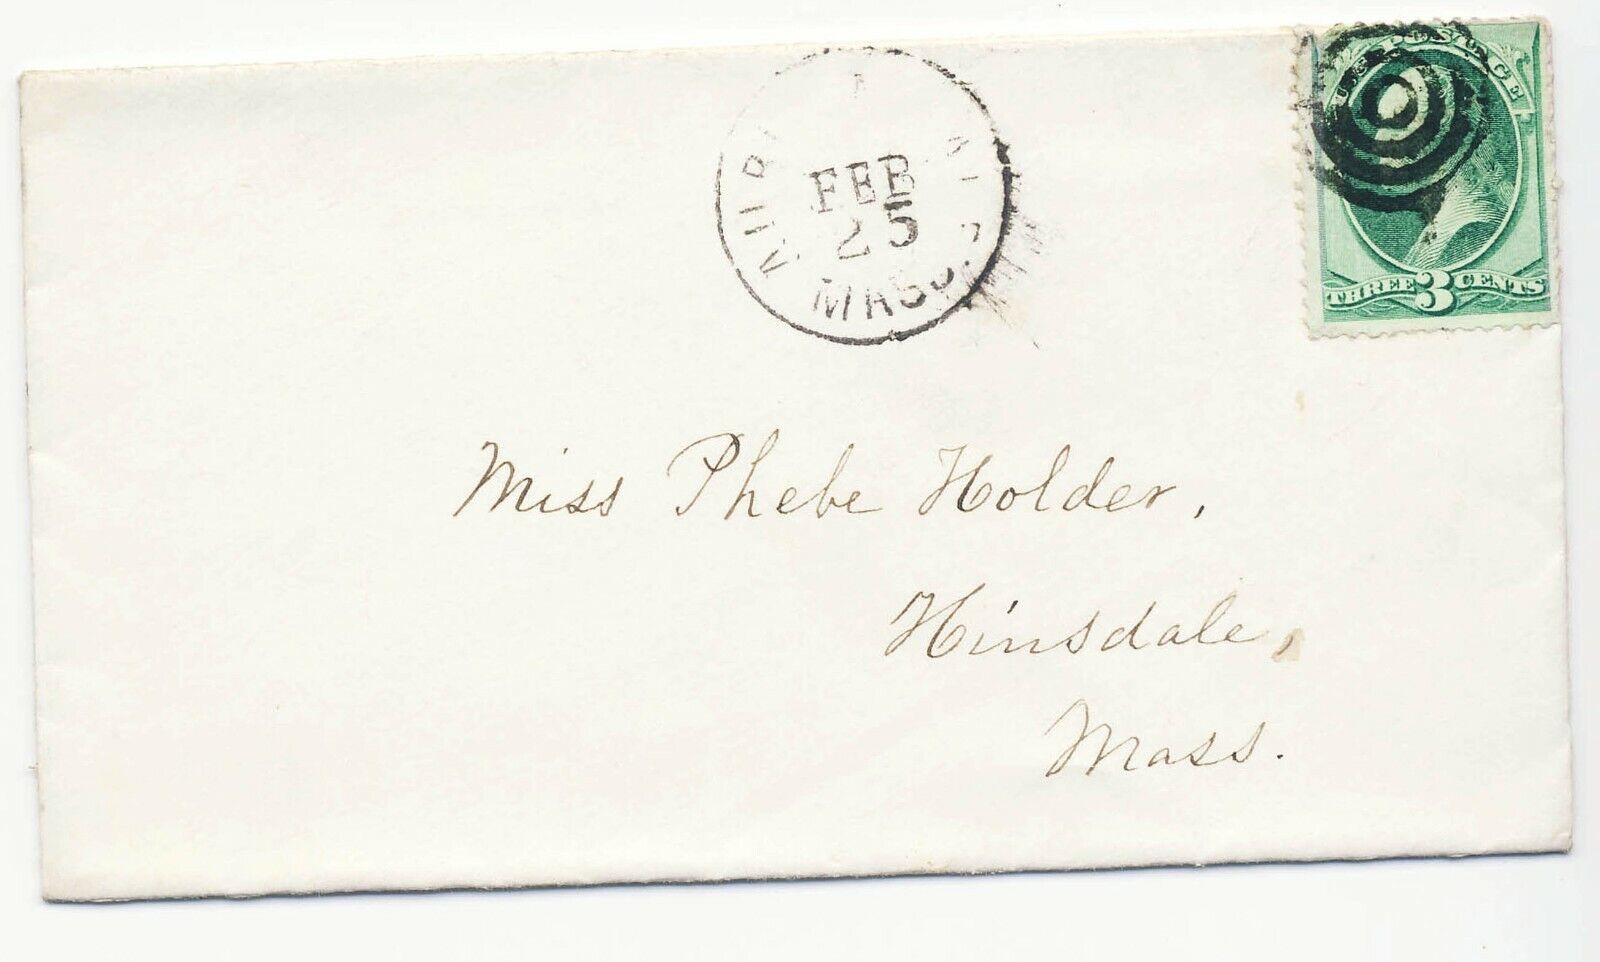 FEB
25
MASS.
U.S. POSTAGE
THREE 3 CENTS
Miss Phebe Holder,
Hinsdale,
Mass.